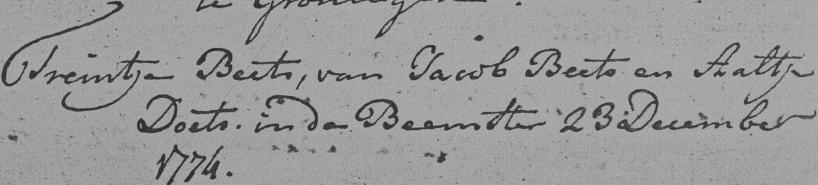 te Groningen.
Treintje Beets, van Jacob Beets en Aaltje
Doets. in de Beemster 23 December
1774.